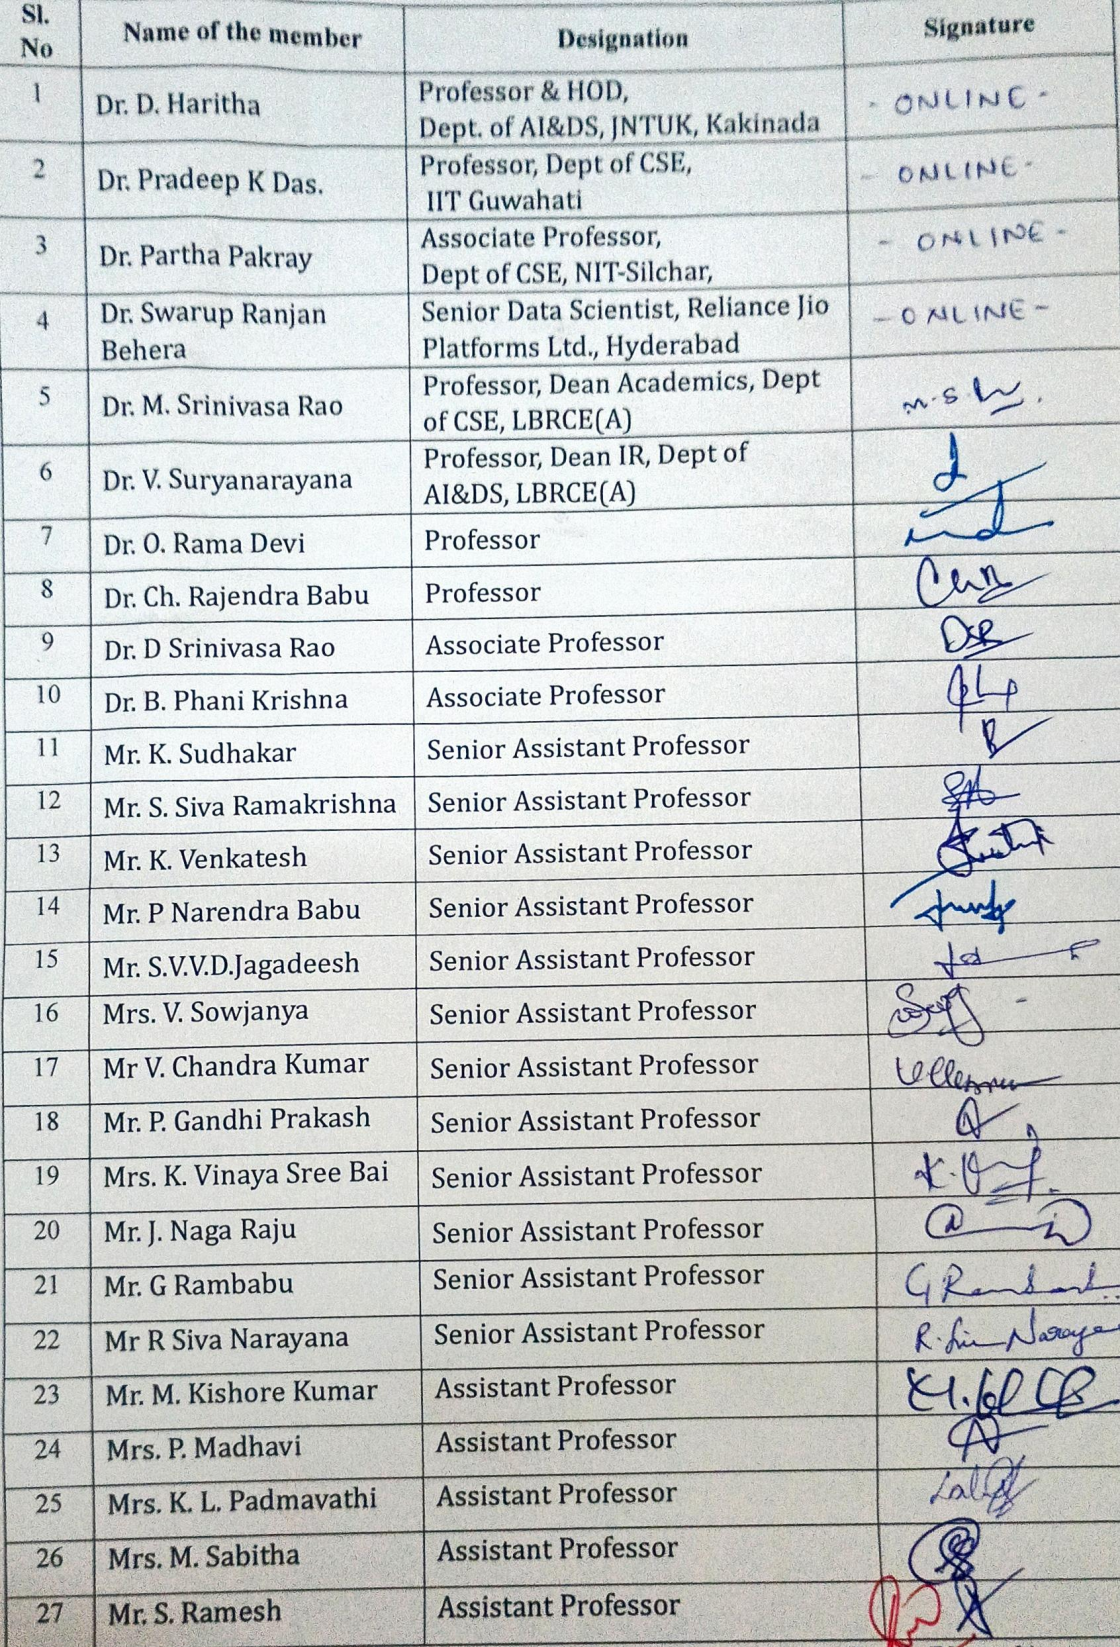 Sl. No Name of the member Designation Signature
1 Dr. D. Haritha Professor & HOD,
Dept. of AI&DS, JNTUK, Kakinada - ONLINE -
2 Dr. Pradeep K Das. Professor, Dept of CSE,
IIT Guwahati - ONLINE -
3 Dr. Partha Pakray Associate Professor,
Dept of CSE, NIT-Silchar, - ONLINE -
4 Dr. Swarup Ranjan Behera Senior Data Scientist, Reliance Jio
Platforms Ltd., Hyderabad - ONLINE -
5 Dr. M. Srinivasa Rao Professor, Dean Academics, Dept
of CSE, LBRCE(A)
6 Dr. V. Suryanarayana Professor, Dean IR, Dept of
AI&DS, LBRCE(A)
7 Dr. O. Rama Devi Professor
8 Dr. Ch. Rajendra Babu Professor
9 Dr. D Srinivasa Rao Associate Professor DSR
10 Dr. B. Phani Krishna Associate Professor
11 Mr. K. Sudhakar Senior Assistant Professor
12 Mr. S. Siva Ramakrishna Senior Assistant Professor
13 Mr. K. Venkatesh Senior Assistant Professor
14 Mr. P Narendra Babu Senior Assistant Professor
15 Mr. S.V.V.D.Jagadeesh Senior Assistant Professor
16 Mrs. V. Sowjanya Senior Assistant Professor
17 Mr V. Chandra Kumar Senior Assistant Professor
18 Mr. P. Gandhi Prakash Senior Assistant Professor
19 Mrs. K. Vinaya Sree Bai Senior Assistant Professor
20 Mr. J. Naga Raju Senior Assistant Professor
21 Mr. G Rambabu Senior Assistant Professor
22 Mr R Siva Narayana Senior Assistant Professor
23 Mr. M. Kishore Kumar Assistant Professor
24 Mrs. P. Madhavi Assistant Professor
25 Mrs. K. L. Padmavathi Assistant Professor
26 Mrs. M. Sabitha Assistant Professor
27 Mr. S. Ramesh Assistant Professor